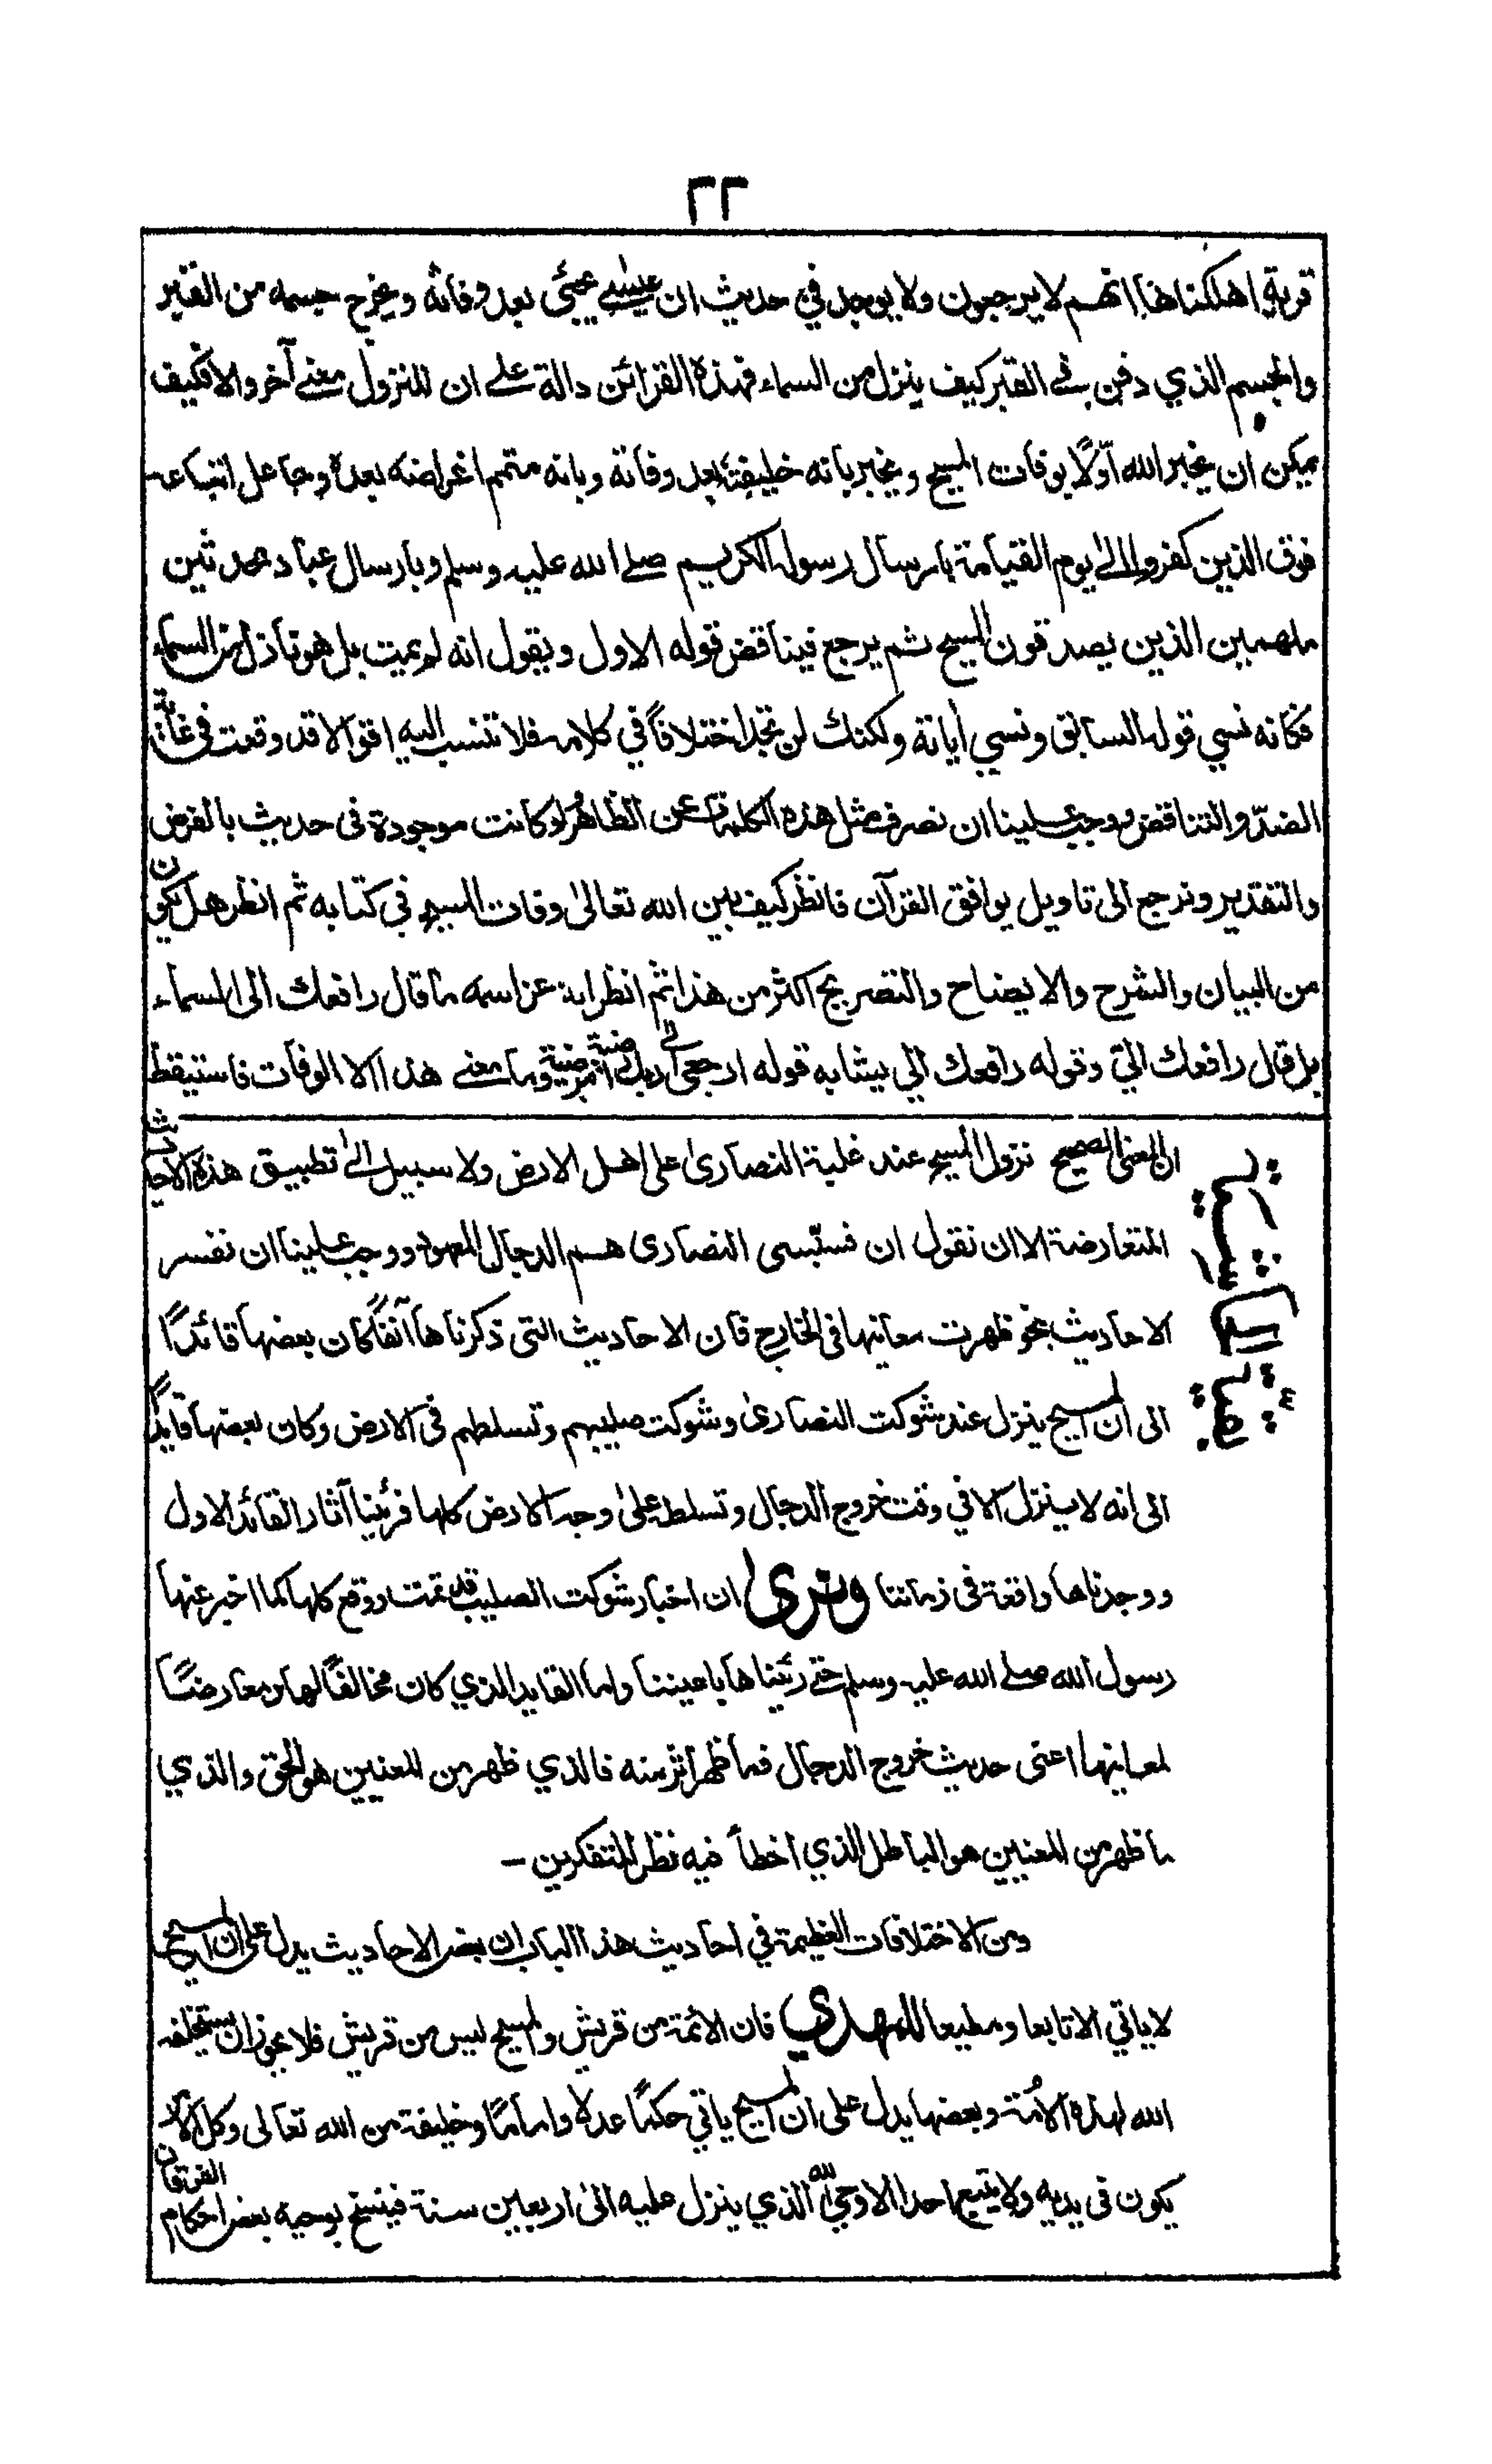 ٢٢
قرية اهلكناها انهم لا يرجعون ولا يوجد في حديث ان عيسى يجيئ بعد وفاته ويخرج جسمه من القبر
والجسم الذي دفن في القبر كيف ينزل من السماء فهذه القرائن دالة على ان للنزول معنے آخر والا فكيف
يمكن ان يخبر الله اوّلًا بوفات المسيح ويخبر بانه خليفته بعد وفاته وبانه متمم اغراضه بعده وجاعل اتباعه
فوق الذين كفروا الىٰ يوم القيامة بارسال رسوله الكريم صلے الله عليه وسلم وبارسال عباد محدثين
ملهمين الذين يصدقون المسيح ثم يرجع فيناقض قوله الاول ويقول انه لم يمت بل هو نازل من السماء
فكانه نسي قوله السابق ونسي أياته ولكنك لن تجد اختلافًا في كلامه فلا تنسب اليه اقوالا قد وقعت فى غاية
الضدّ والتناقض ووجب علينا ان نصرف مثل هذه الكلمات عن الظاهر لو كانت موجودة فى حديث بالفرض
والتقدير ونرجع الى تاويل يوافق القرآن فانظر كيف بين الله تعالىٰ وفات المسيح في كتابه ثم انظر هل يكون
من البيان والشرح والايضاح والتصريح اكثر من هذا ثم انظر انه عز اسمه ما قال رافعك الى السماء
بل قال رافعك اليّ وقوله رافعك الي يشابه قوله ارجعى الى ربك راضية مرضية وما معنے هذا الا الوفات فاستيقظ
ان المعنى الصحيح نزول المسيح عند غلبة النصارىٰ على اهل الارض ولا سبيل الىٰ تطبيق هذه الاحاديث
المتعارضة الا ان نقول ان قسّيسى النصارى هم الدجال المعهود ووجب علينا ان نفسر
الاحاديث بنحو ظهرت معانيها فى الخارج فان الاحاديث التى ذكرناها آنفًا كان بعضها قائدًا
الى ان المسيح ينزل عند شوكت النصارىٰ وشوكت صليبهم وتسلطهم فى الارض وكان بعضها قايدًا
الى انه لا ينزل الا في وقت خروج الدجال وتسلط علىٰ وجه الارض كلها فرئينا آثار القائد الاول
ووجدناها واقعة فى زماننا ونرىٰ ان اخبار شوكت الصليب قد تمت ووقع كلها كما اخبر عنها
رسول الله صلے الله عليه وسلم حتى رئيناها باعيننا واما القايد الذي كان مخالفًا لها ومعارضًا
لمعانيها اعنى حديث خروج الدجال فما ظهر اثر منه فالذي ظهر من المعنيين هو الحق والذي
ما ظهر من المعنيين هو الباطل الذي اخطأ فيه نظر المتفكرين –
ومن الاختلافات العظيمة في احاديث هذا الباب ان بعض الاحاديث يدل على ان المسيح
لا ياتي الا تابعا ومطيعا للمهدي فان الائمة من قريش والمسيح ليس من قريش فلا يجوز ان يستخلفه
الله لهذه الامة وبعضها يدل على ان المسيح ياتي حكمًا عدلا واماما وخليفة من الله تعالى وكل الامر
يكون فى يديه ولا يتبع احدا الا وحي الله الذي ينزل عليه الىٰ اربعين سنة فينسخ بوحيه بعض احكام الفرقان